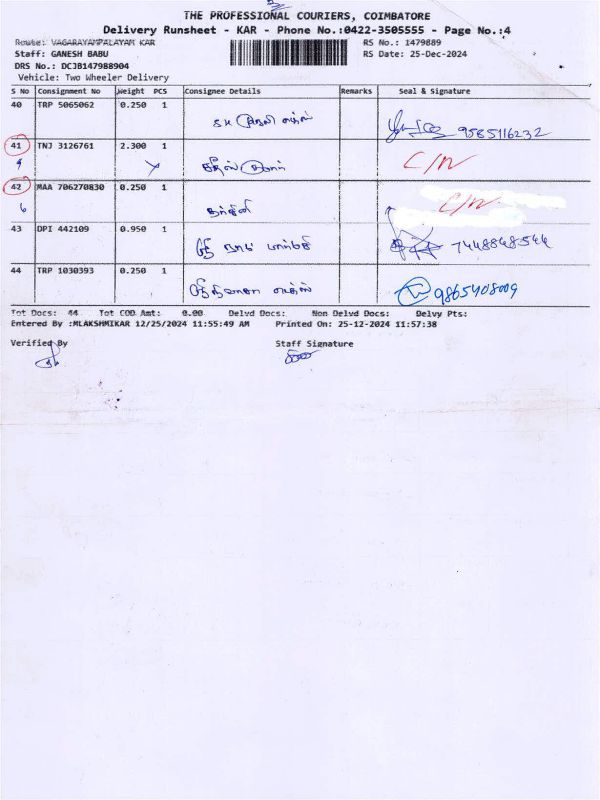 THE PROFESSIONAL COURIERS, COIMBATORE
Delivery Runsheet - KAR - Phone No.:0422-3505555 - Page No.:4
Route: VAGARAYAMPALAYAM KAR RS No.: 1479889
Staff: GANESH BABU RS Date: 25-Dec-2024
DRS No.: DCJB147988904
Vehicle: Two Wheeler Delivery
S No Consignment No Weight PCS Consignee Details Remarks Seal & Signature
40 TRP 5065062 0.250 1
9585116232
41 TNJ 3126761 2.300 1
C/N
42 MAA 706270830 0.250 1
C/N
43 DPI 442109 0.950 1
ஸ்ரீ
7448848544
44 TRP 1030393 0.250 1
9865408009
Tot Docs: 44 Tot COD Amt: 0.00 Delvd Docs: Non Delvd Docs: Delvy Pts:
Entered By :MLAKSHMIKAR 12/25/2024 11:55:49 AM Printed On: 25-12-2024 11:57:38
Verified By Staff Signature